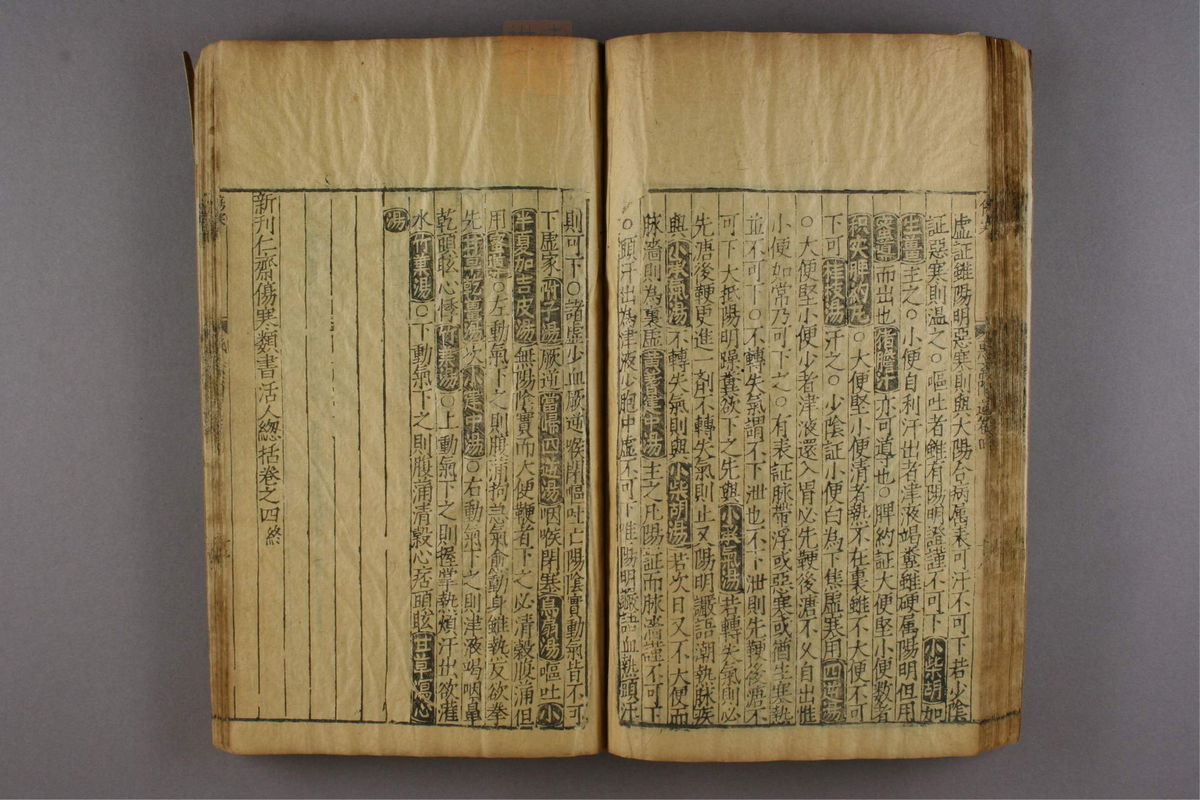 虛証雖陽明惡寒則與太陽合病屬表可汗不可下若少陰
証惡寒則温之○嘔吐者雖有陽明證謹不可下小柴胡加
生薑主之○小便自利汗出者津液竭糞雖硬属陽明但用
蜜導而出也猪膽汁亦可導也○脾約証大便堅小便数者
脾約丸○大便堅小便清者熱不在裏雖不大便不可
下可桂枝湯汗之○少陰証小便白為下焦虛寒用四逆湯
○大便堅小便少者津液還入胃必先鞕後溏不久自出惟
小便如常乃可下之○有表証脉帶浮或惡寒或洒生寒熱
並不可下○不轉失氣謂不下泄也不下泄則先鞕後溏不
可下大抵陽明躁糞欲下之先與小承氣湯若轉失氣則必
先溏後鞕更進一剤不轉失氣則止又陽明讝語潮熱脉疾
與小承氣湯不轉失氣則與小柴胡湯若次日又不大便而
脉濇則為裏虛黄耆建中湯主之凡陽証而脉濇謹不可下
○頭汗出為津液少胞中虛不可下惟陽明讝語血熱頭汗
則可下○諸虛少血厥逆喉閉嘔吐亡陽陰實動氣皆不可
下虛家附子湯厥逆當歸四逆湯咽喉閉塞烏扇湯嘔吐小
半夏加吉皮湯無陽陰實而大便鞕者下之必清穀腹滿但
用蜜導○左動氣下之則腹滿拘急氣愈動身雖熱反欲拳
先甘草乾薑湯次小建中湯○右動氣下之則津液竭咽鼻
乾頭眩心悸竹葉湯○上動氣下之則握掌熱煩汗出欲灌
水竹葉湯○下動氣下之則腹滿清穀心痞頭眩甘草瀉心
湯
新刊仁齋傷寒類書活人緫括卷之四終